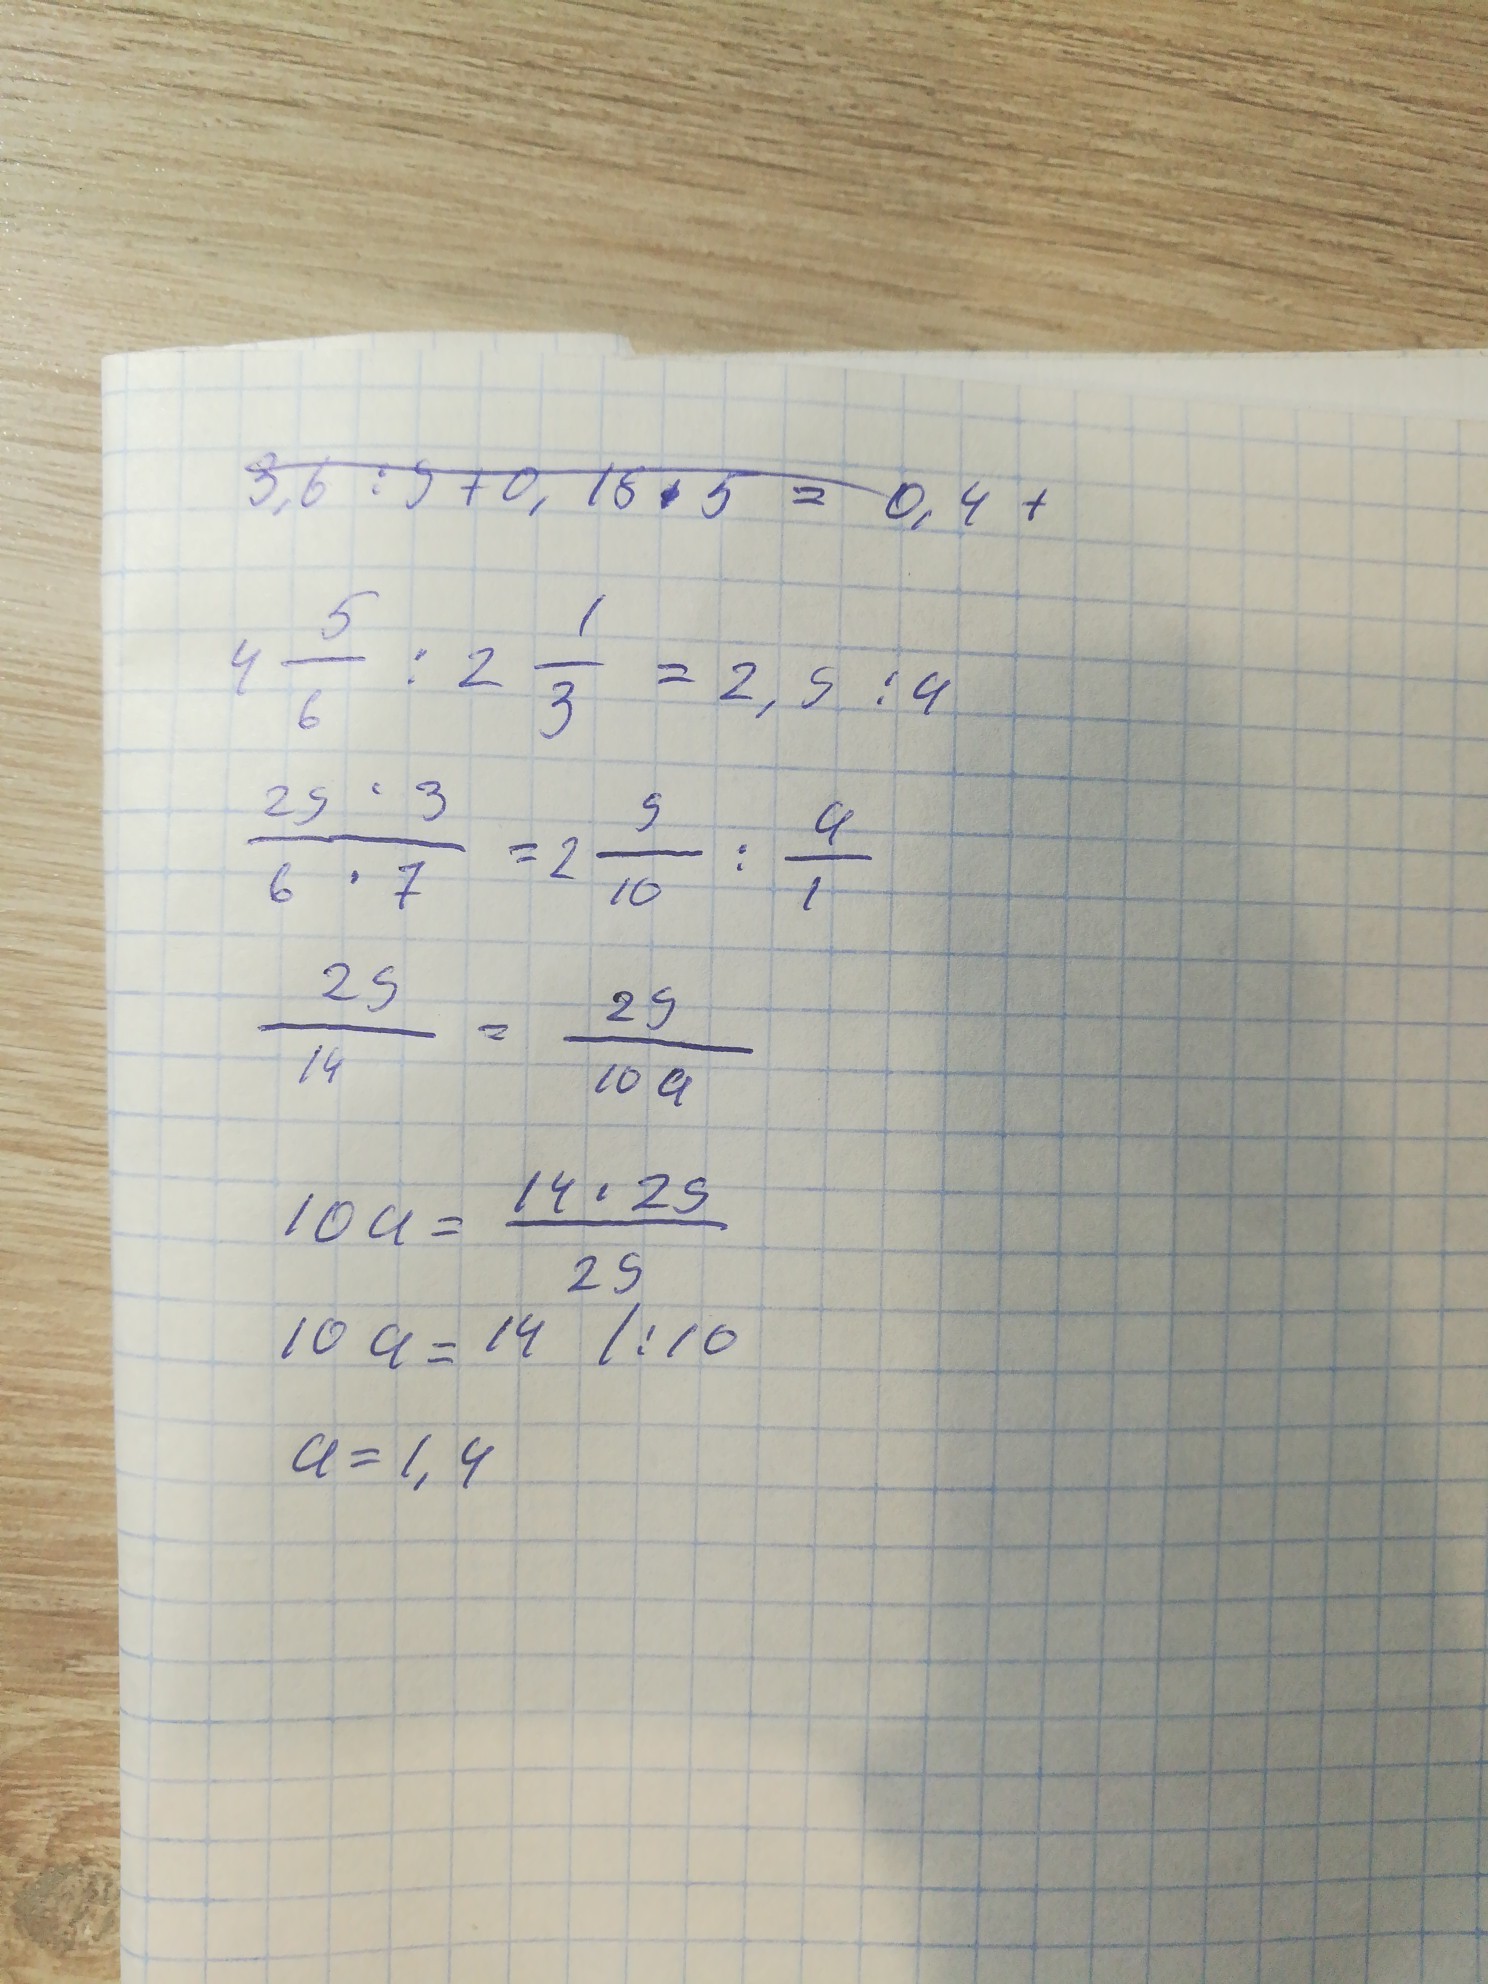 3,6 : 9 + 0, 15 · 5 = 0,4 +
4 5/6 : 2 1/3 = 2,9 : a
29 · 3 / 6 · 7 = 2 9/10 : a/1
29/14 = 29/10a
10a = 14 · 29 / 29
10a = 14 /:10
a = 1,4